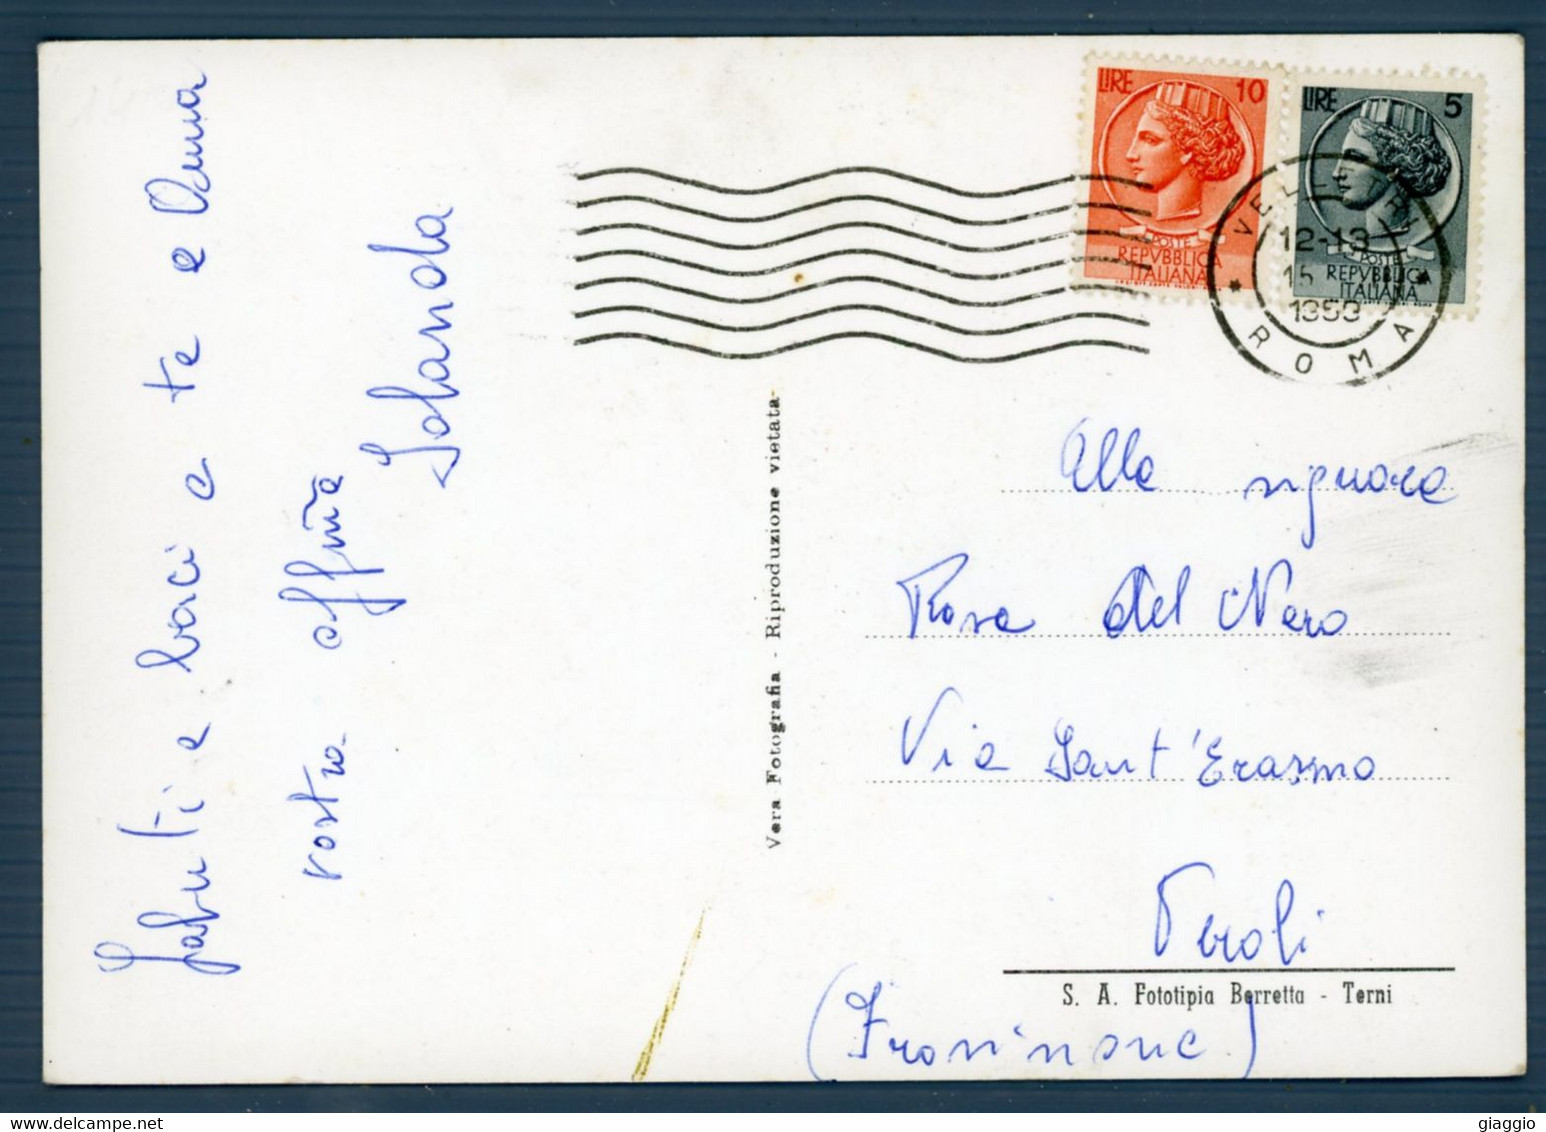 Saluti e baci a te e Anna
vostra aff.ma
Jolanda
Vera Fotografia - Riproduzione vietata
LIRE 10
POSTE
REPVBBLICA
ITALIANA
LIRE 5
POSTE
REPVBBLICA
ITALIANA
VELLETRI
12-13
15
ROMA
Alla signora
Rosa Del Nero
Via Sant'Erasmo
Veroli
S. A. Fototipia Berretta - Terni
(Frosinone)
giaggio